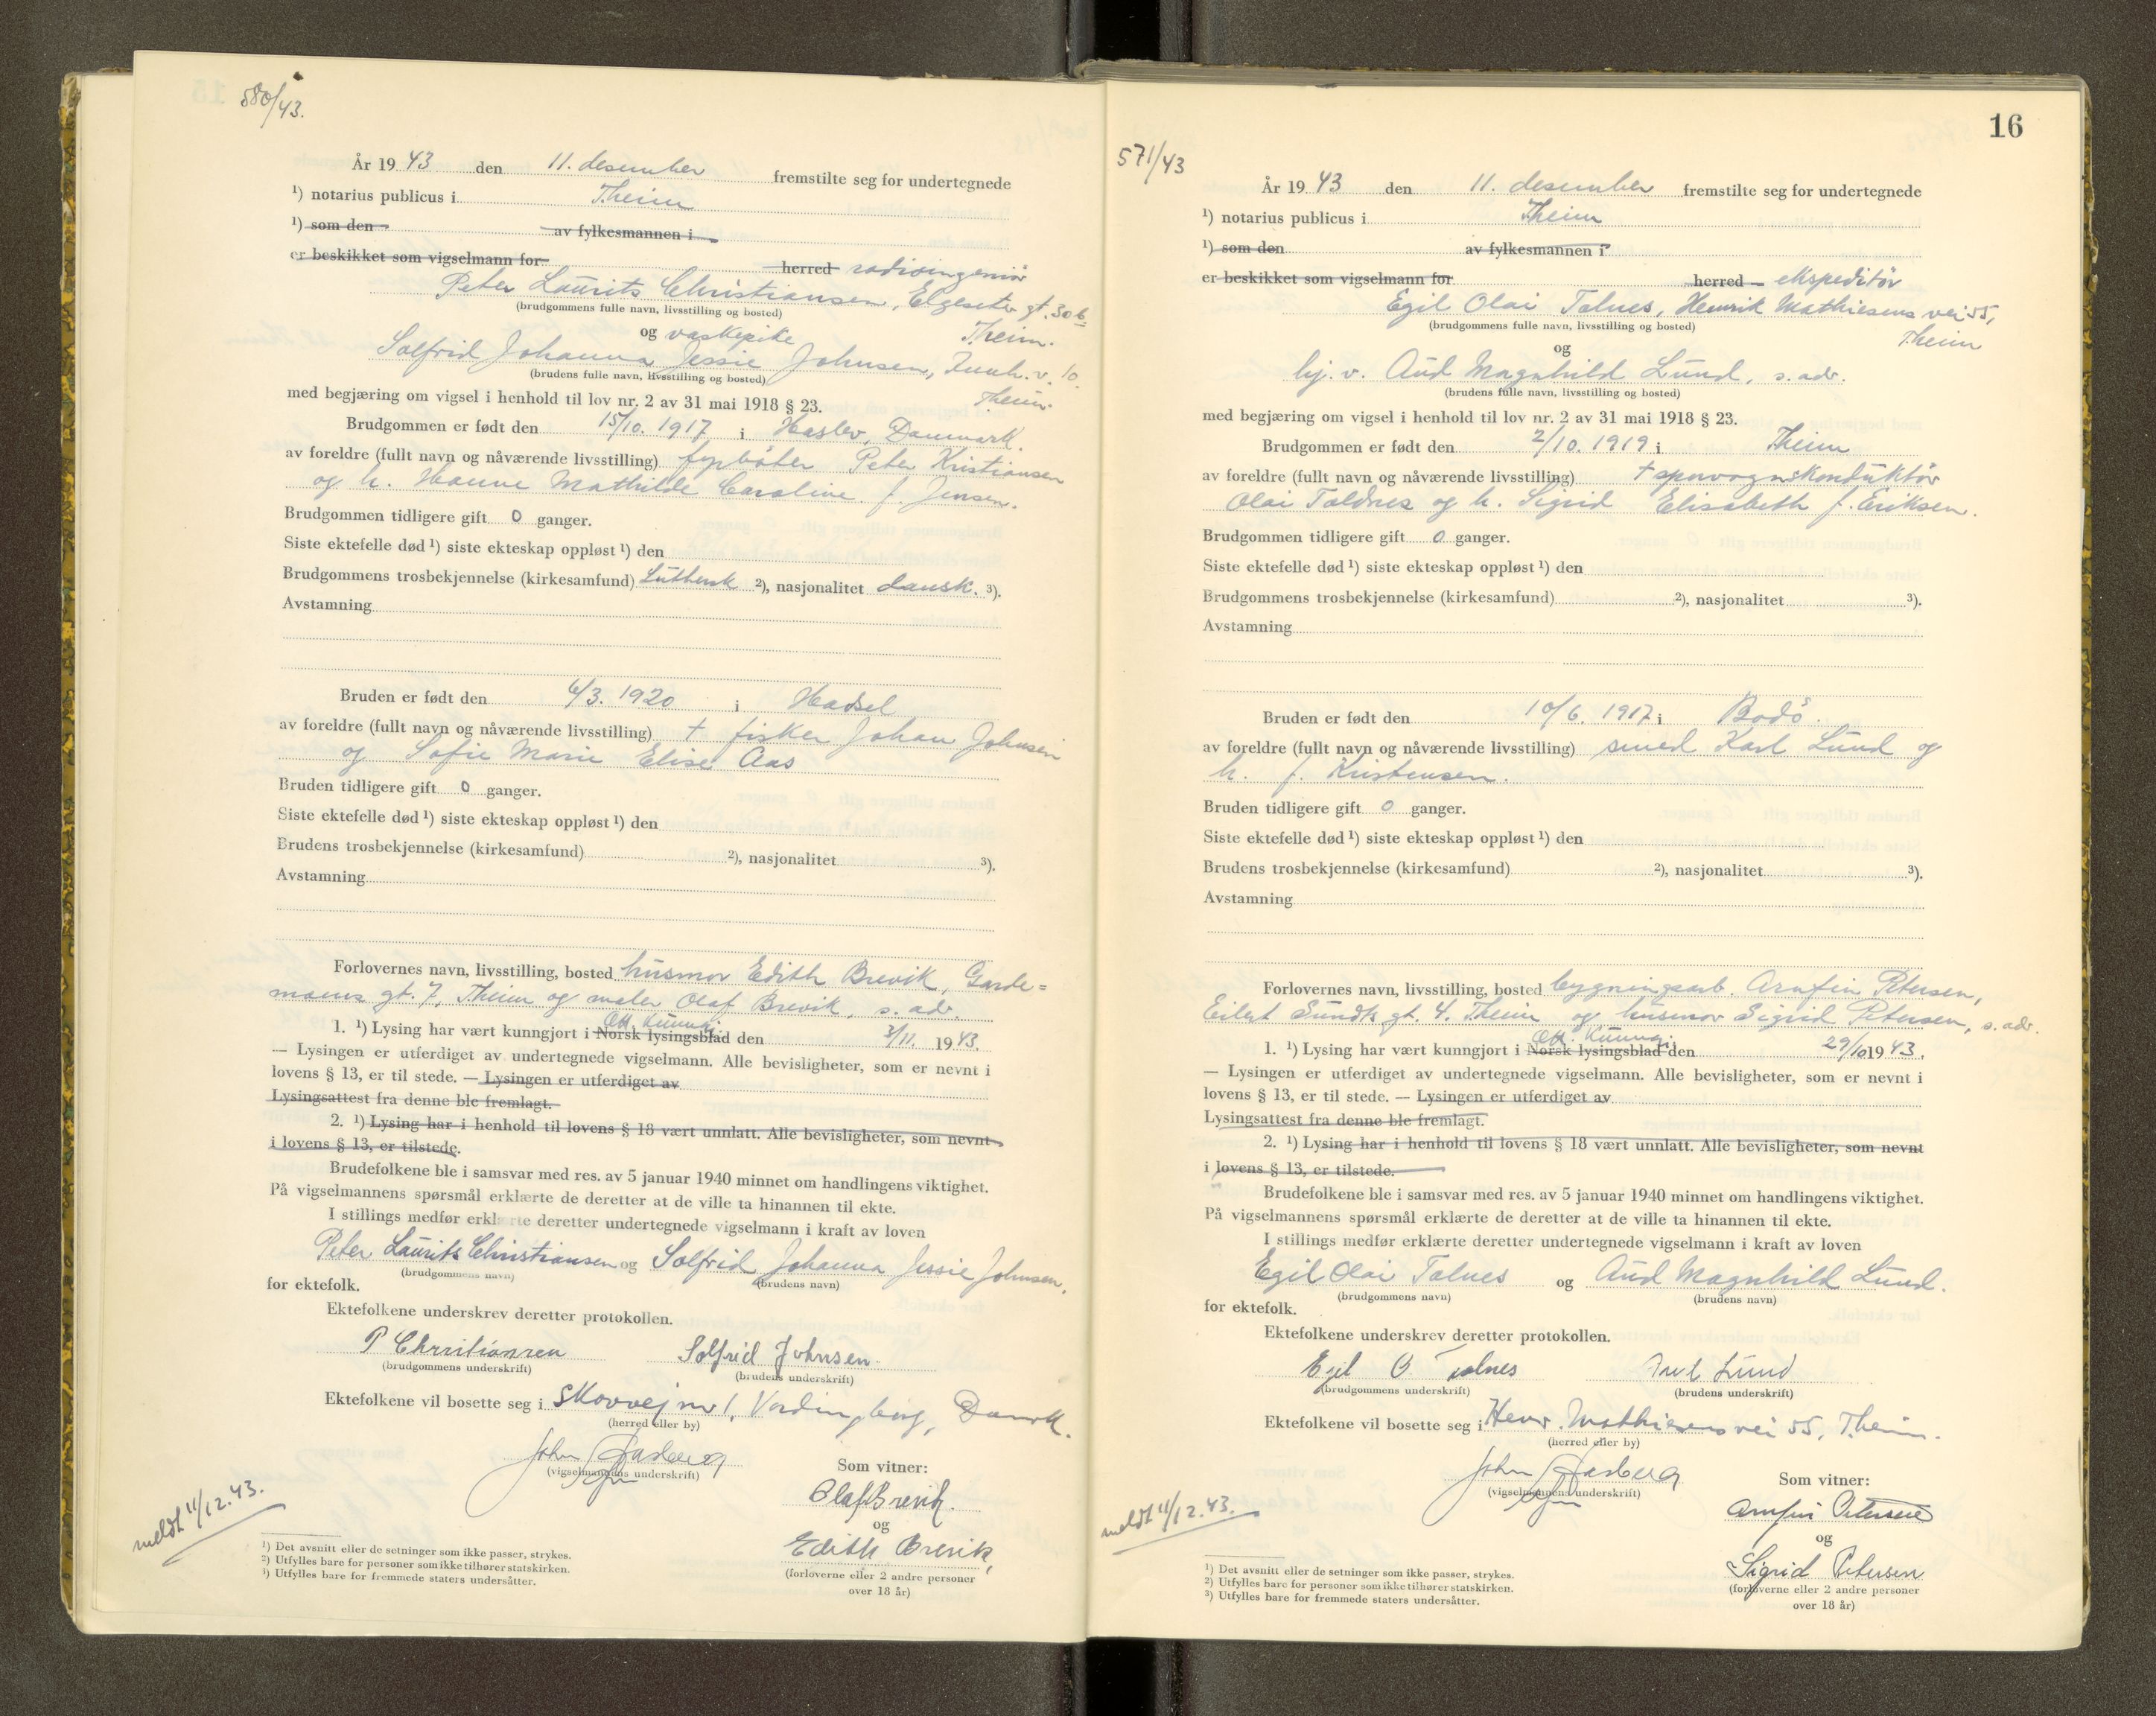 580/43.
År 19 43 den 11. desember fremstilte seg for undertegnede
¹) notarius publicus i Theim
¹) som den av fylkesmannen i
er beskikket som vigselmann for herred radioingeniør
Peter Laurits Christiansen, Elgeseter gt. 30 b
(brudgommens fulle navn, livsstilling og bosted)
og vaskepike Theim.
Solfrid Johanna Jessie Johnsen, Innh. v. 10.
(brudens fulle navn, livsstilling og bosted)
med begjæring om vigsel i henhold til lov nr. 2 av 31 mai 1918 § 23. Theim.
Brudgommen er født den 15/10. 1917 i Haslev, Danmark.
av foreldre (fullt navn og nåværende livsstilling) fyrbøter Peter Kristiansen
og h. Hanne Mathilde Caroline f. Jensen.
Brudgommen tidligere gift 0 ganger.
Siste ektefelle død ¹) siste ekteskap oppløst ¹) den
Brudgommens trosbekjennelse (kirkesamfund) Luthersk ²), nasjonalitet dansk. ³).
Avstamning
Bruden er født den 6/3. 1920 i Hadsel
av foreldre (fullt navn og nåværende livsstilling) † fisker Johan Johnsen
og Sofie Marie Elise Aas
Bruden tidligere gift 0 ganger.
Siste ektefelle død ¹) siste ekteskap oppløst ¹) den
Brudens trosbekjennelse (kirkesamfund) ²), nasjonalitet ³).
Avstamning
Forlovernes navn, livsstilling, bosted husmor Edith Brevik, Garde=
moens gt. 7, Theim og maler Olaf Brevik, s. adr.
Off. Kunngj.
1. ¹) Lysing har vært kunngjort i Norsk lysingsblad den 3/11. 19 43.
— Lysingen er utferdiget av undertegnede vigselmann. Alle bevisligheter, som er nevnt i
lovens § 13, er til stede. — Lysingen er utferdiget av
Lysingsattest fra denne ble fremlagt.
2. ¹) Lysing har i henhold til lovens § 18 vært unnlatt. Alle bevisligheter, som nevnt
i lovens § 13, er tilstede.
Brudefolkene ble i samsvar med res. av 5 januar 1940 minnet om handlingens viktighet.
På vigselmannens spørsmål erklærte de deretter at de ville ta hinannen til ekte.
I stillings medfør erklærte deretter undertegnede vigselmann i kraft av loven
Peter Laurits Christiansen og Solfrid Johanna Jessie Johnsen,
(brudgommens navn) (brudens navn)
for ektefolk.
Ektefolkene underskrev deretter protokollen.
P Christiansen Solfrid Johnsen.
(brudgommens underskrift) (brudens underskrift)
Ektefolkene vil bosette seg i Skovvej nr 1, Vordingborg, Danmk.
(herred eller by)
(vigselmannens underskrift)
Som vitner:
Olaf Brevik.
og
Edith Brevik,
(forloverne eller 2 andre personer
over 18 år)
meldt 11/12.43.
¹) Det avsnitt eller de setninger som ikke passer, strykes.
²) Utfylles bare for personer som ikke tilhører statskirken.
³) Utfylles bare for fremmede staters undersåtter.
16
571/43
År 19 43 den 11. desember fremstilte seg for undertegnede
¹) notarius publicus i Theim
¹) som den av fylkesmannen i
er beskikket som vigselmann for herred ekspeditør
Egil Olai Talnes, Henrik Mathiesens vei 55,
(brudgommens fulle navn, livsstilling og bosted) Theim
og
hj. v. Aud Magnhild Lund, s. adr.
(brudens fulle navn, livsstilling og bosted)
med begjæring om vigsel i henhold til lov nr. 2 av 31 mai 1918 § 23.
Brudgommen er født den 2/10. 1919 i Theim
av foreldre (fullt navn og nåværende livsstilling) † sporvognskonduktør
Olai Taldnes og h. Sigrid Elisabeth f. Eriksen.
Brudgommen tidligere gift 0 ganger.
Siste ektefelle død ¹) siste ekteskap oppløst ¹) den
Brudgommens trosbekjennelse (kirkesamfund) ²), nasjonalitet ³).
Avstamning
Bruden er født den 10/6. 1917 i Bodø.
av foreldre (fullt navn og nåværende livsstilling) smed Karl Lund og
h. f. Kristensen.
Bruden tidligere gift 0 ganger.
Siste ektefelle død ¹) siste ekteskap oppløst ¹) den
Brudens trosbekjennelse (kirkesamfund) ²), nasjonalitet ³).
Avstamning
Forlovernes navn, livsstilling, bosted bygningsarb. Arnfin Petersen,
Eilert Sundts gt. 4. Theim og husmor Sigrid Petersen, s. adr.
Off. Kunngj.
1. ¹) Lysing har vært kunngjort i Norsk lysingsblad den 29/10 19 43.
— Lysingen er utferdiget av undertegnede vigselmann. Alle bevisligheter, som er nevnt i
lovens § 13, er til stede. — Lysingen er utferdiget av
Lysingsattest fra denne ble fremlagt.
2. ¹) Lysing har i henhold til lovens § 18 vært unnlatt. Alle bevisligheter, som nevnt
i lovens § 13, er tilstede.
Brudefolkene ble i samsvar med res. av 5 januar 1940 minnet om handlingens viktighet.
På vigselmannens spørsmål erklærte de deretter at de ville ta hinannen til ekte.
I stillings medfør erklærte deretter undertegnede vigselmann i kraft av loven
Egil Olai Talnes og Aud Magnhild Lund.
(brudgommens navn) (brudens navn)
for ektefolk.
Ektefolkene underskrev deretter protokollen.
Egil O Talnes Aud Lund
(brudgommens underskrift) (brudens underskrift)
Ektefolkene vil bosette seg i Henr. Mathiesens vei 55, Theim.
(herred eller by)
(vigselmannens underskrift)
Som vitner:
Arnfin Petersen
og
Sigrid Petersen
(forloverne eller 2 andre personer
over 18 år)
meldt 11/12.43.
¹) Det avsnitt eller de setninger som ikke passer, strykes.
²) Utfylles bare for personer som ikke tilhører statskirken.
³) Utfylles bare for fremmede staters undersåtter.